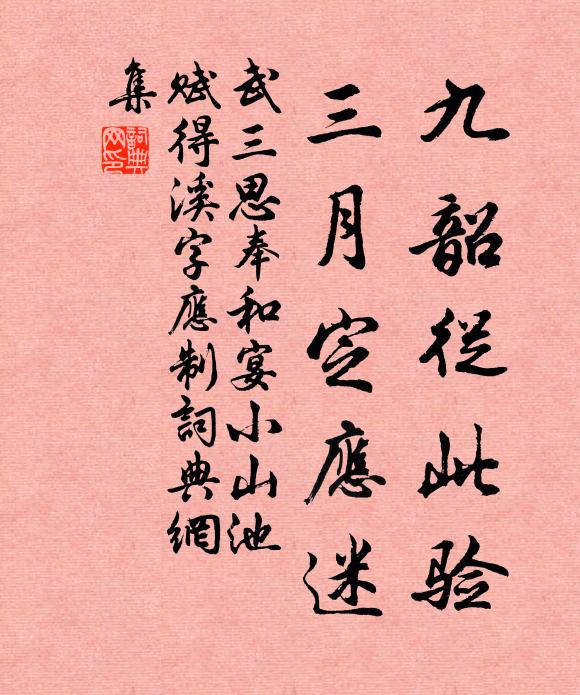 九韶從此验
三月定應迷
武三思奉和宴小山池
賦得溪字應制詞典網
集
詞典網印